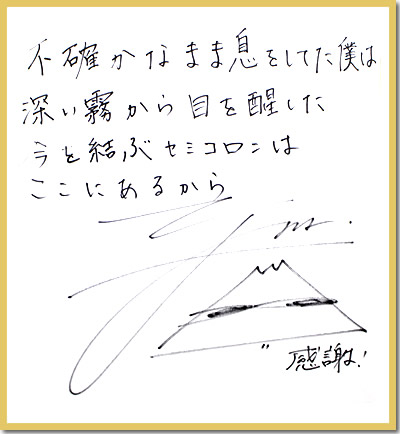 不確かなまま息をしてた僕は
深い霧から目を醒した
今を結ぶセミコロンは
ここにあるから
感謝!